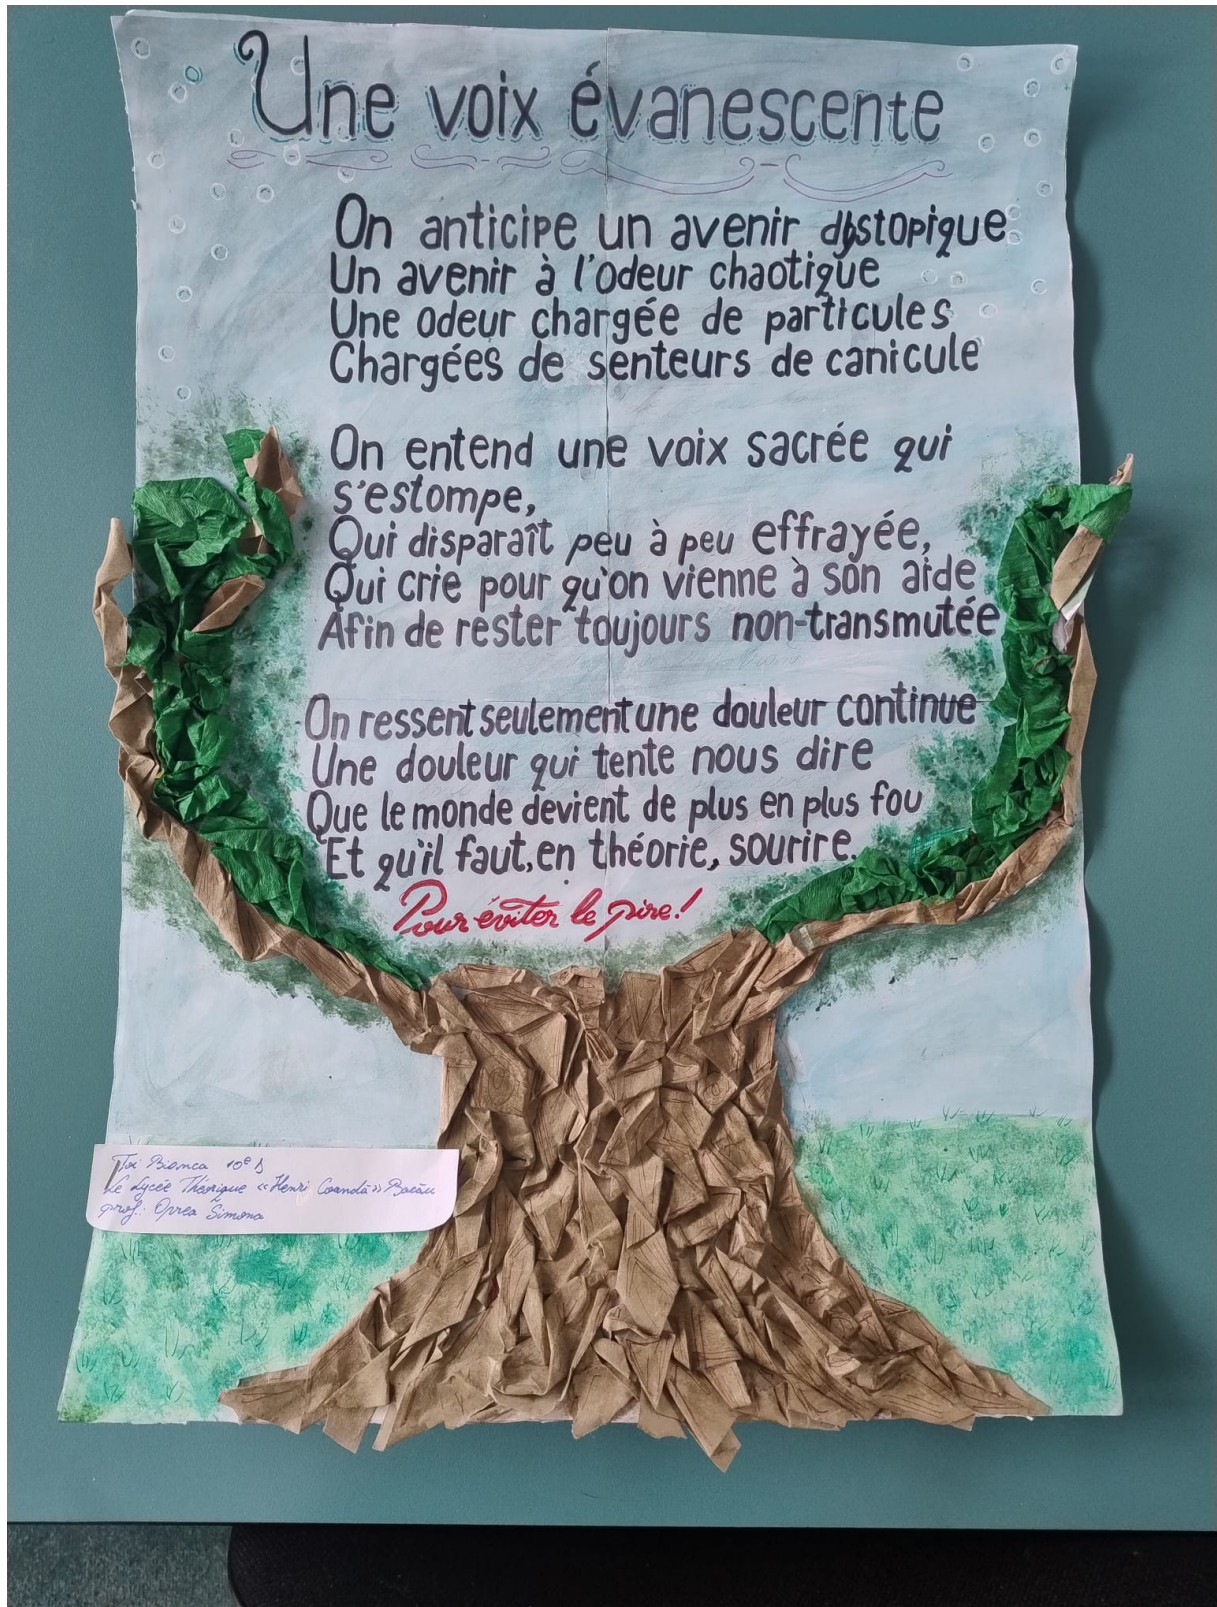 Une voix évanescente
On anticipe un avenir dystopique
Un avenir à l'odeur chaotique
Une odeur chargée de particules
Chargées de senteurs de canicule
On entend une voix sacrée qui
s'estompe,
Qui disparaît peu à peu effrayée,
Qui crie pour qu'on vienne à son aide
Afin de rester toujours non-transmutée
On ressent seulement une douleur continue
Une douleur qui tente nous dire
Que le monde devient de plus en plus fou
Et qu'il faut, en théorie, sourire.
Pour éviter le pire!
Bianca 10e
Le Lycée Théorique «Henri Coandă» Bacău
prof.: Oprea Simona